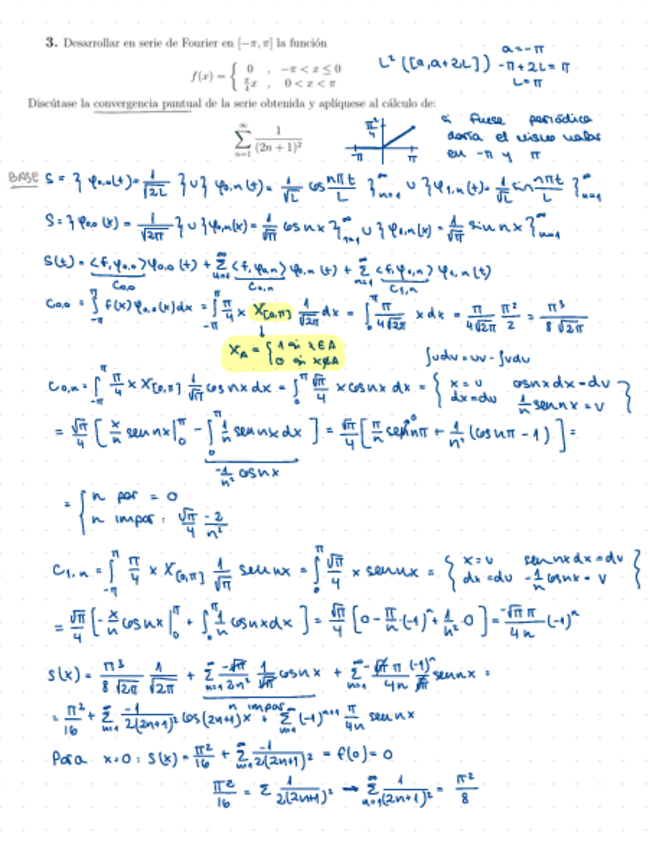 3. Desarrollar en serie de Fourier en [−π, π] la función
L²([a, a+2L]) a=-π
-π+2L=π
L=π
f(x) = { 0 , −π < x ≤ 0
π/4 x , 0 < x < π
Discútase la convergencia puntual de la serie obtenida y aplíquese al cálculo de:
∑_{n=1}^{∞} 1/(2n+1)²
π²/4
-π π
si fuese periódica
daría el mismo valor
en -π y π
BASE S = { φ₀,₀(t) = 1/√2L } ∪ { φ₀,n(t) = 1/√L cos nπt/L }_{n=1}^∞ ∪ { φ₁,n(t) = 1/√L sin nπt/L }_{n=1}^∞
S = { φ₀,₀(x) = 1/√2π } ∪ { φ₀,n(x) = 1/√π cos nx }_{n=1}^∞ ∪ { φ₁,n(x) = 1/√π sin nx }_{n=1}^∞
S(t) = <f, φ₀,₀> φ₀,₀(t) + ∑_{n=1}^∞ <f, φ₀,n> φ₀,n(t) + ∑_{n=1}^∞ <f, φ₁,n> φ₁,n(t)
C₀,₀ C₀,n C₁,n
C₀,₀ = ∫_{-π}^{π} f(x) φ₀,₀(x) dx = ∫_{-π}^{π} π/4 x χ_[0,π] 1/√2π dx = ∫_0^π π/(4√2π) x dx = π/(4√2π) π²/2 = π³/(8√2π)
χ_A = { 1 si x∈A
0 si x∉A
∫udv = uv - ∫vdu
C₀,n = ∫_{-π}^{π} π/4 x χ_[0,π] 1/√π cos nx dx = ∫_0^π √π/4 x cos nx dx = { x = u cos nx dx = dv
dx = du 1/n sen nx = v }
= √π/4 [ x/n sen nx |_0^π - ∫_0^π 1/n sen nx dx ] = √π/4 [ π/n sen nπ + 1/n² (cos nπ - 1) ] =
-1/n² cos nx
= { n par = 0
n impar : √π/4 -2/n²
C₁,n = ∫_{-π}^{π} π/4 x χ_[0,π] 1/√π sen nx = ∫_0^π √π/4 x sen nx = { x = u sen nx dx = dv
dx = du -1/n cos nx = v }
= √π/4 [ -x/n cos nx |_0^π + ∫_0^π 1/n cos nx dx ] = √π/4 [ 0 - π/n (-1)^n + 1/n² 0 ] = -√π π/4n (-1)^n
S(x) = π³/(8√2π) 1/√2π + ∑_{n=1} -√π/2n² 1/√π cos nx + ∑_{n=1}^∞ -√π π (-1)^n/4n √π sen nx =
n impar
= π²/16 + ∑_{n=1}^∞ -1/2(2n+1)² cos(2n+1)x + ∑_{n=1}^∞ (-1)^{n+1} π/4n sen nx
Para x=0 : S(x) = π²/16 + ∑_{n=1}^∞ -1/2(2n+1)² = f(0) = 0
π²/16 = ∑ 1/2(2n+1)² → ∑_{n=1}^∞ 1/(2n+1)² = π²/8